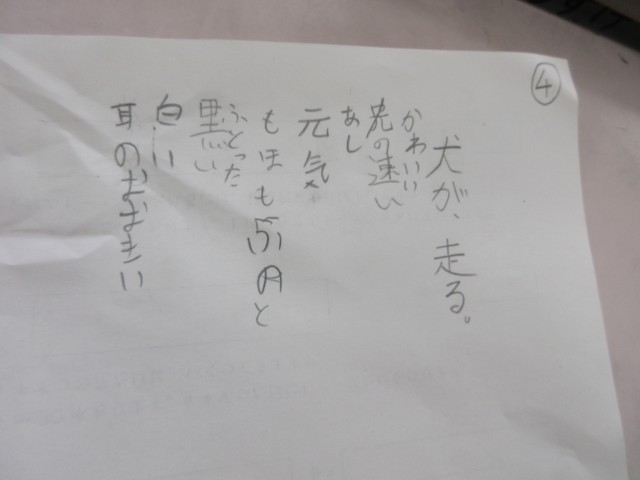 ④
犬が、走る。
かわいい
足の速い
あし
元気
ふとった
黒い
白い
耳のおおきい